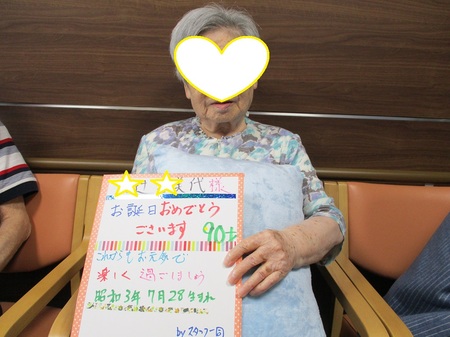 さ 代様
お誕生日おめでとう
ございます 90才
これからもお元気で
楽しく過ごしましょう
昭和3年7月28生まれ
byスタッフ一同